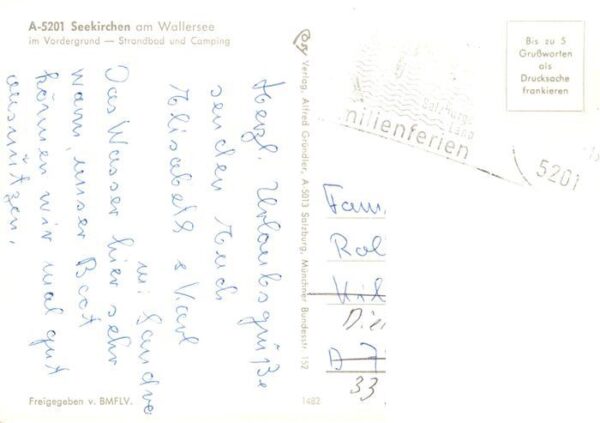 A-5201 Seekirchen am Wallersee
im Vordergrund — Strandbad und Camping
Herzl. Urlaubsgrüße
senden Euch
Elisabeth & Karl
mi Sandra
Das Wasser hier sehr
warm, unser Boot
können wir mal gut
ausnützen.
Freigegeben v. BMFLV.
Verlag. Alfred Gründler, A-5013 Salzburg, Münchner Bundesstr. 152
1482
Bis zu 5
Grußworten
als
Drucksache
frankieren
Salzburger
Land
milienferien
5201
Fam.
Rol
Die
33